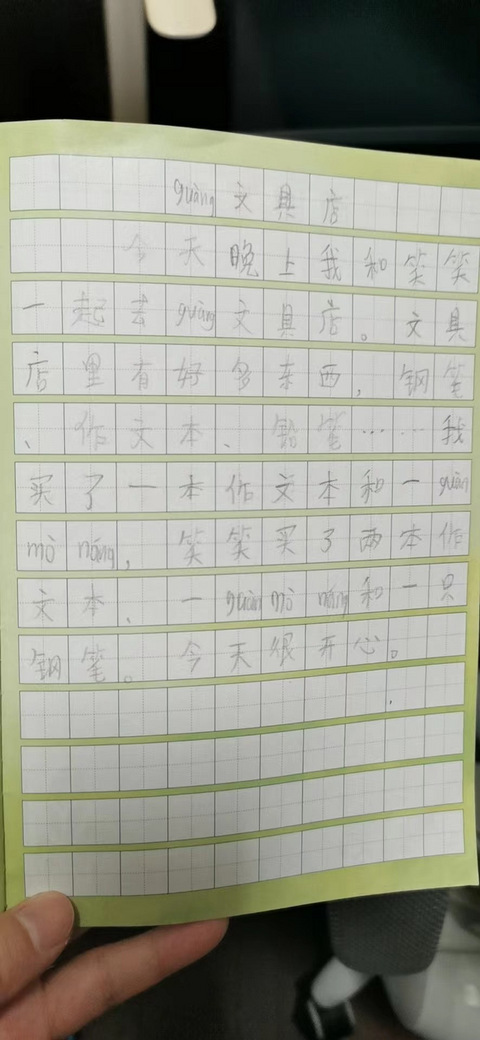 guàng文具店
今天晚上我和笑笑
一起去guàng文具店。文具
店里有好多东西,钢笔
、作文本、铅笔……我
买了一本作文本和一guàn
mò náng,笑笑买了两本作
文本、一guàn mò náng和一只
钢笔。今天很开心。